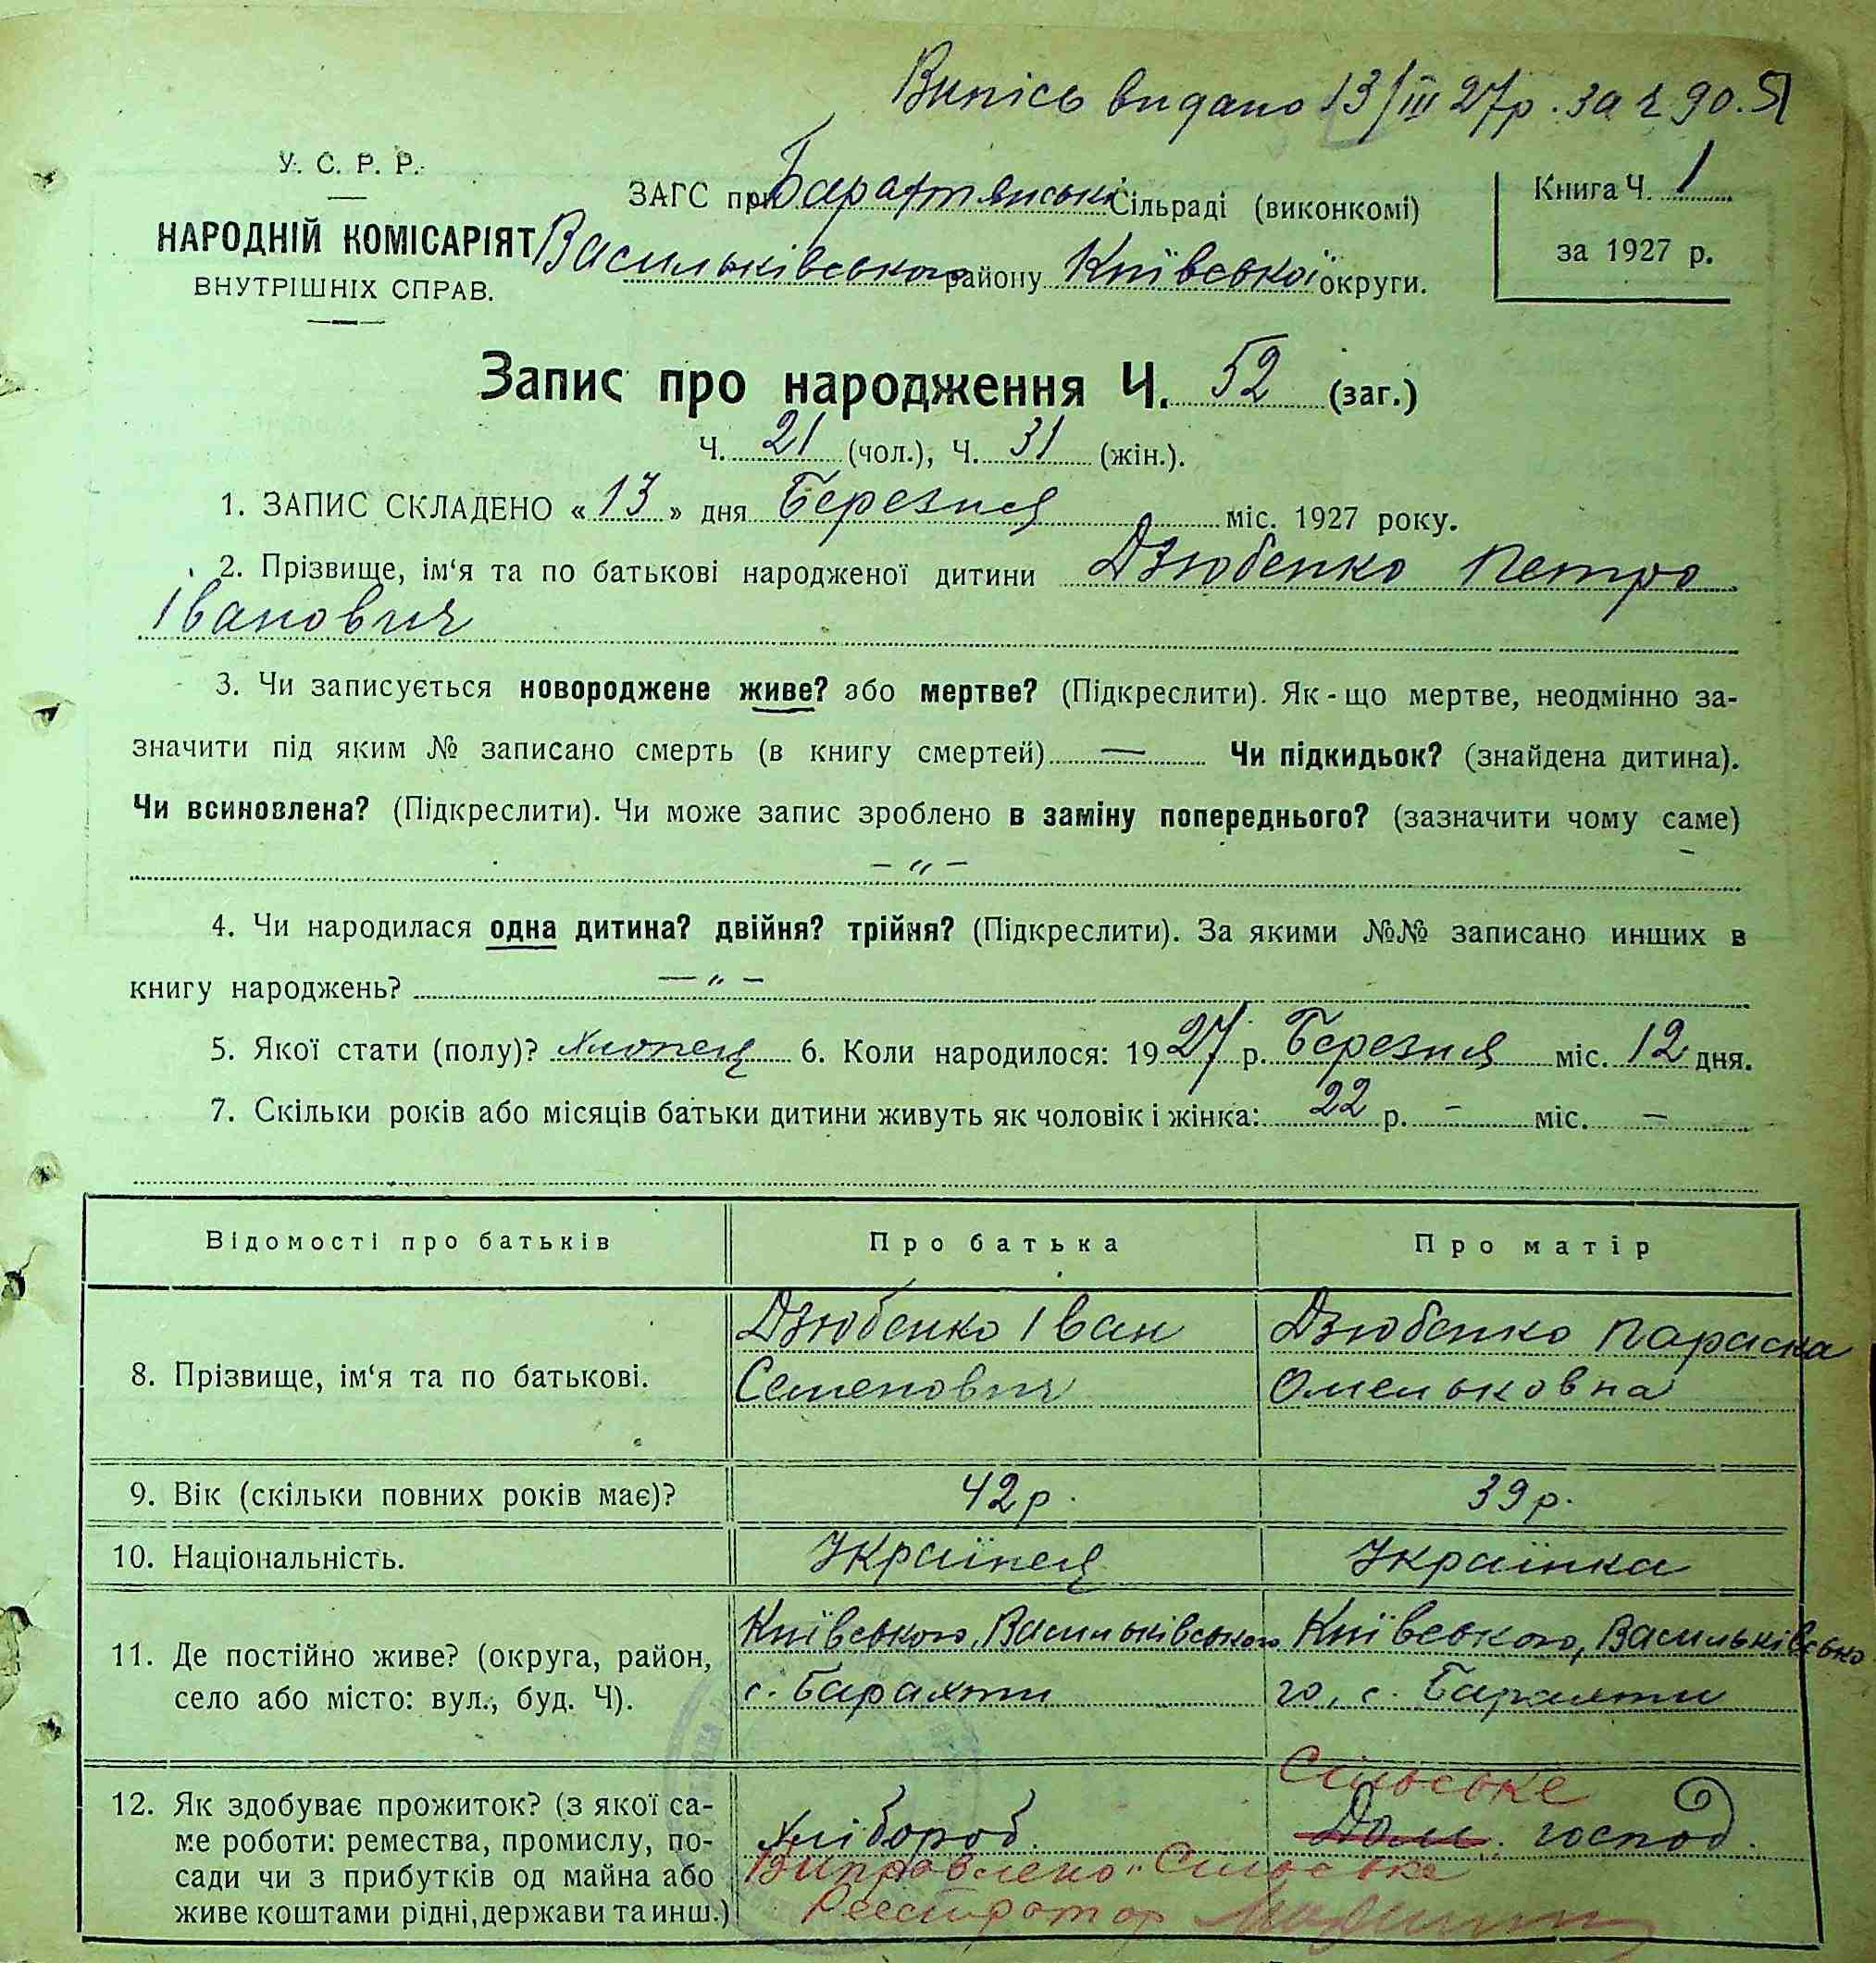 Випісь видано 13/III 27р. за ч 90.
У. С. Р. Р.
НАРОДНІЙ КОМІСАРІЯТ
ВНУТРІШНІХ СПРАВ.
ЗАГС при Барахтянській Сільраді (виконкомі)
Васильківського району Київської округи.
Книга Ч. 1
за 1927 р.
Запис про народження Ч. 52 (заг.)
Ч. 21 (чол.), Ч. 31 (жін.).
1. ЗАПИС СКЛАДЕНО « 13 » дня Березня міс. 1927 року.
2. Прізвище, ім‘я та по батькові народженої дитини Дзюбенко Петро
Іванович
3. Чи записується новороджене живе? або мертве? (Підкреслити). Як-що мертве, неодмінно за-
значити під яким № записано смерть (в книгу смертей) — Чи підкидьок? (знайдена дитина).
Чи всиновлена? (Підкреслити). Чи може запис зроблено в заміну попереднього? (зазначити чому саме)
– „ –
4. Чи народилася одна дитина? двійня? трійня? (Підкреслити). За якими №№ записано инших в
книгу народжень? — „ –
5. Якої стати (полу)? хлопець 6. Коли народилося: 1927 р. Березня міс. 12 дня.
7. Скільки років або місяців батьки дитини живуть як чоловік і жінка: 22 р. – міс. –
Відомості про батьків
Про батька
Про матір
8. Прізвище, ім‘я та по батькові.
Дзюбенко Іван
Семенович
Дзюбенко Параска
Омельковна
9. Вік (скільки повних років має)?
42 р.
39 р.
10. Національність.
Українець
Українка
11. Де постійно живе? (округа, район,
село або місто: вул., буд. Ч).
Київського, Васильківського
с. Барахти
Київського, Васильківсько
го, с. Барахти
12. Як здобуває прожиток? (з якої са-
ме роботи: ремества, промислу, по-
сади чи з прибутків од майна або
живе коштами рідні, держави та инш.)
Хлібороб.
Сільське
Дом. господ.
Виправлено „Сільське
Реєстратор